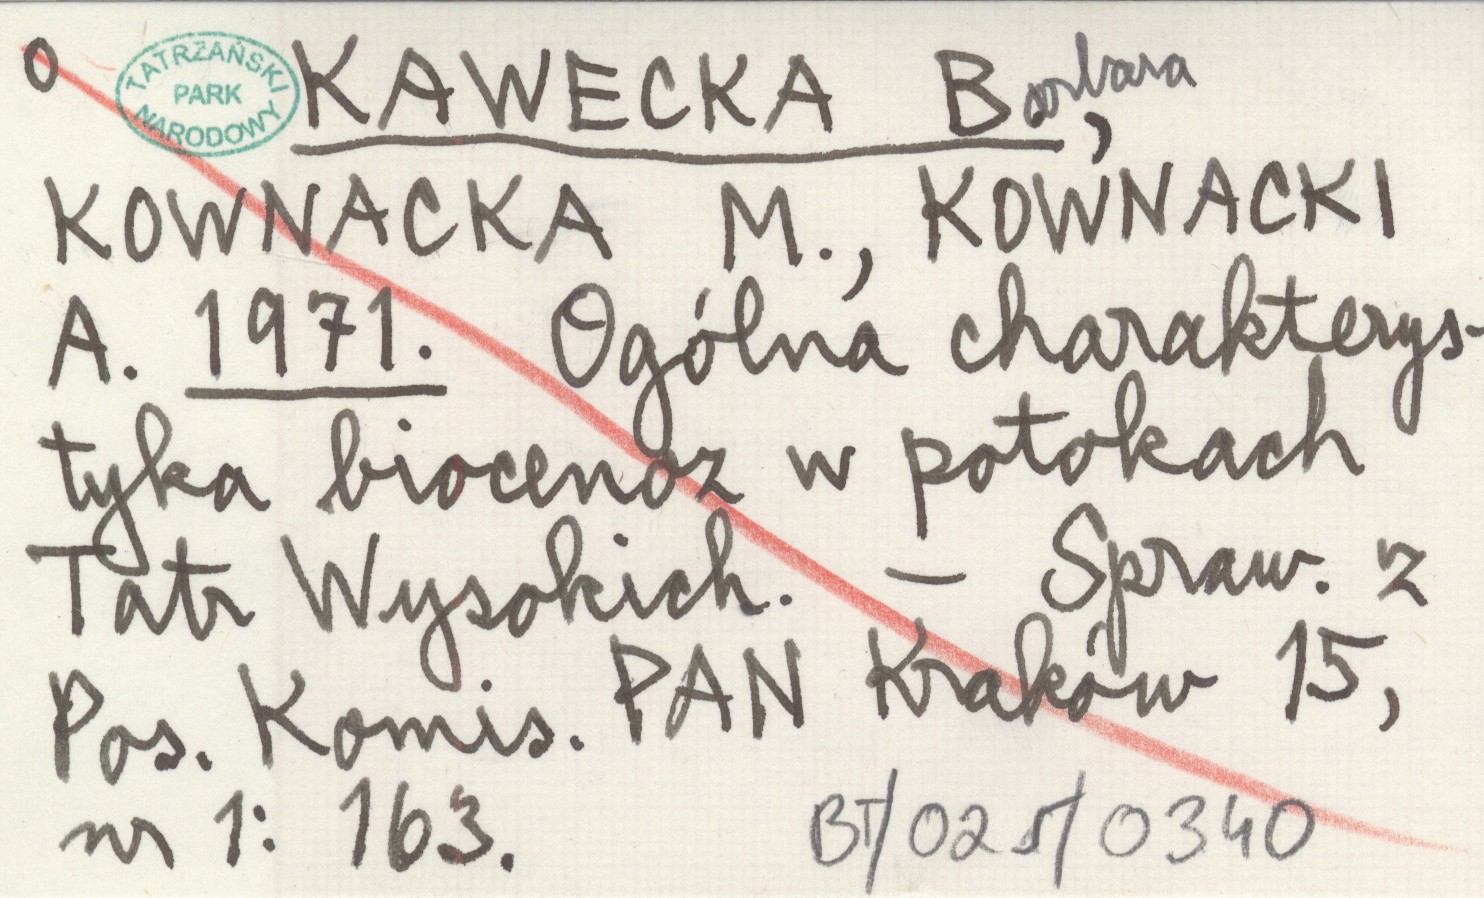 O TATRZAŃSKI PARK NARODOWY KAWECKA Barbara,
KOWNACKA M., KOWNACKI
A. 1971. Ogólna charakterys-
tyka biocenoz w potokach
Tatr Wysokich. — Spraw. z
Pos. Komis. PAN Kraków 15,
nr 1: 163.
BT/025/0340